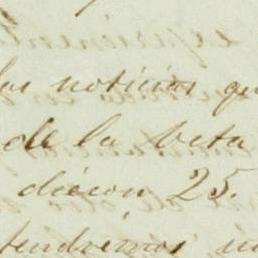 las noticias qu
de la veta
dieron 25.
tendremos